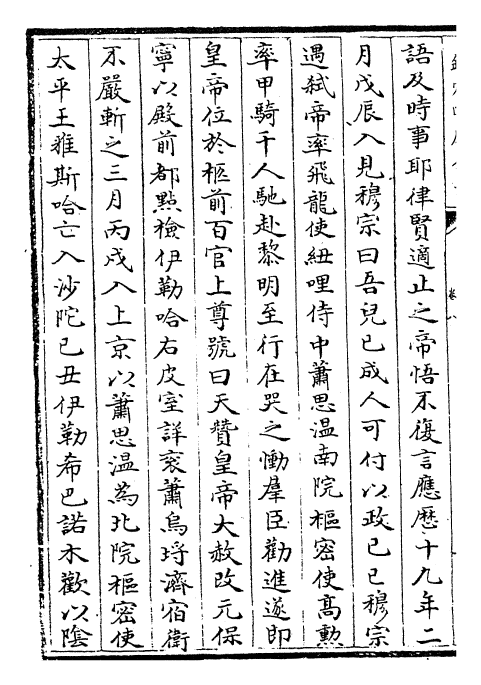 語及時事耶律賢適止之帝悟不復言應歷十九年二
月戊辰入見穆宗曰吾兒已成人可付以政己巳穆宗
遇弑帝率飛龍使紐哩侍中蕭思溫南院樞密使髙勲
率甲騎千人馳赴黎明至行在哭之慟羣臣勸進遂即
皇帝位於柩前百官上尊號曰天贊皇帝大赦改元保
寧以殿前都點檢伊勒哈右皮室詳袞蕭烏㖸濟宿衛
不嚴斬之三月丙戌入上京以蕭思溫為北院樞密使
太平王雅斯哈亡入沙陀己丑伊勒希巴諾木歡以隂